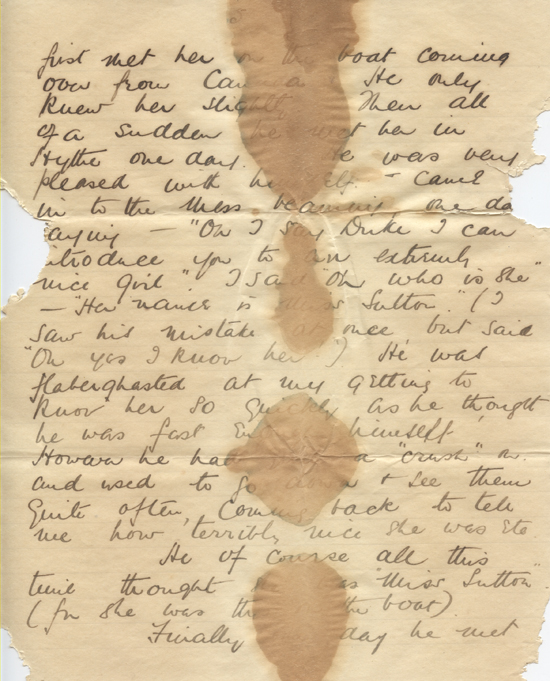 first met her on the boat coming
over from Canada He only
knew her slightly. Then all
of a sudden he met her in
Hythe one day. He was very
pleased with himself - came
in to the mess beaming one da
aying - "Oh I say Duke I can
ntroduce you to an extremely
nice girl" I said "Oh who is she"
- "Her name is Miss Sutton." (I
saw his mistake at once but said
"Oh yes I know her") He was
flaberghasted at my getting to
know her so quickly as he thought
he was fast himself.
However he had a "crush" on
and used to go + see them
quite often, coming back to tell
me how terribly nice she was etc.
He of course all this
time thought as "Miss Sutton"
(for she was the boat)
Finally day he met